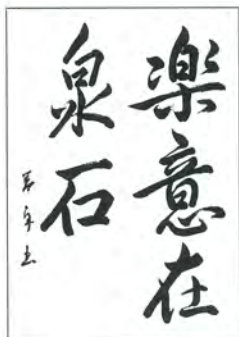 楽意在
泉石